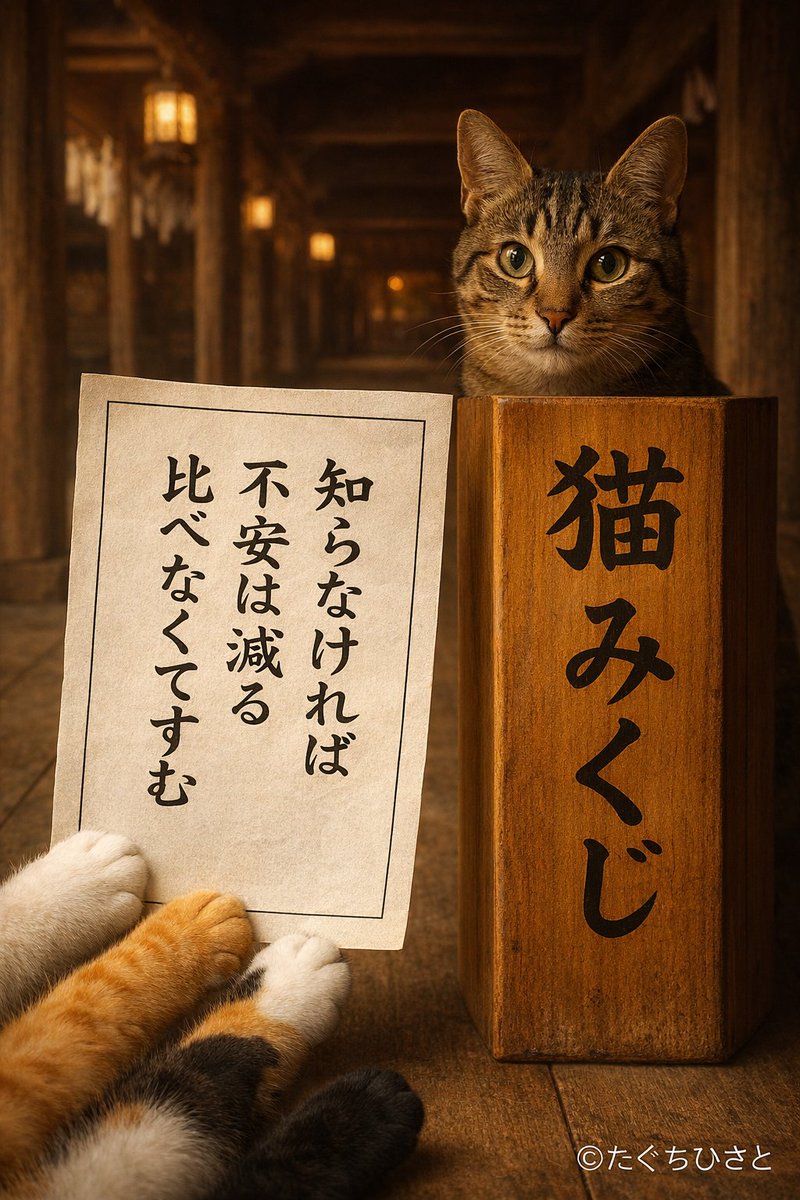 知らなければ
不安は減る
比べなくてすむ
猫みくじ
©たぐちひさと